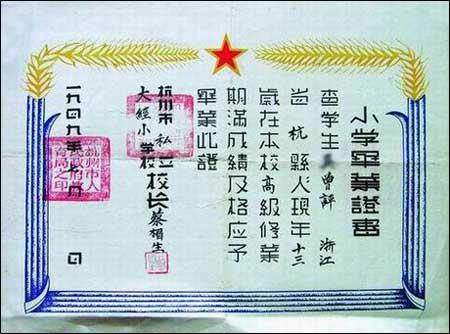 小学畢業證書
查学生 曾評 浙江
省 杭 縣人現年十三
歲在本校高級修業
期滿成績及格应予
畢業此證
杭州市 私立
大經小学校 校长 蔡相生
一九四九年 月 日
杭州市人民政府教育局之印